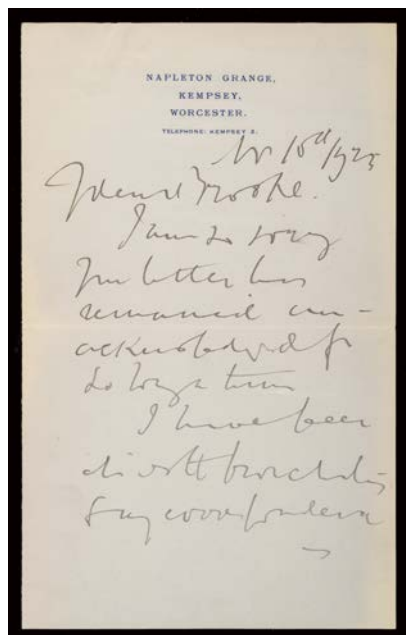 NAPLETON GRANGE,
KEMPSEY,
WORCESTER.
TELEPHONE: KEMPSEY 2.
Nov 10th/1925
Brooke.
I am so sorry
letter has
remained un-
acknowledged for
so long a time
I have been
ill with bronchitis
& my correspondence